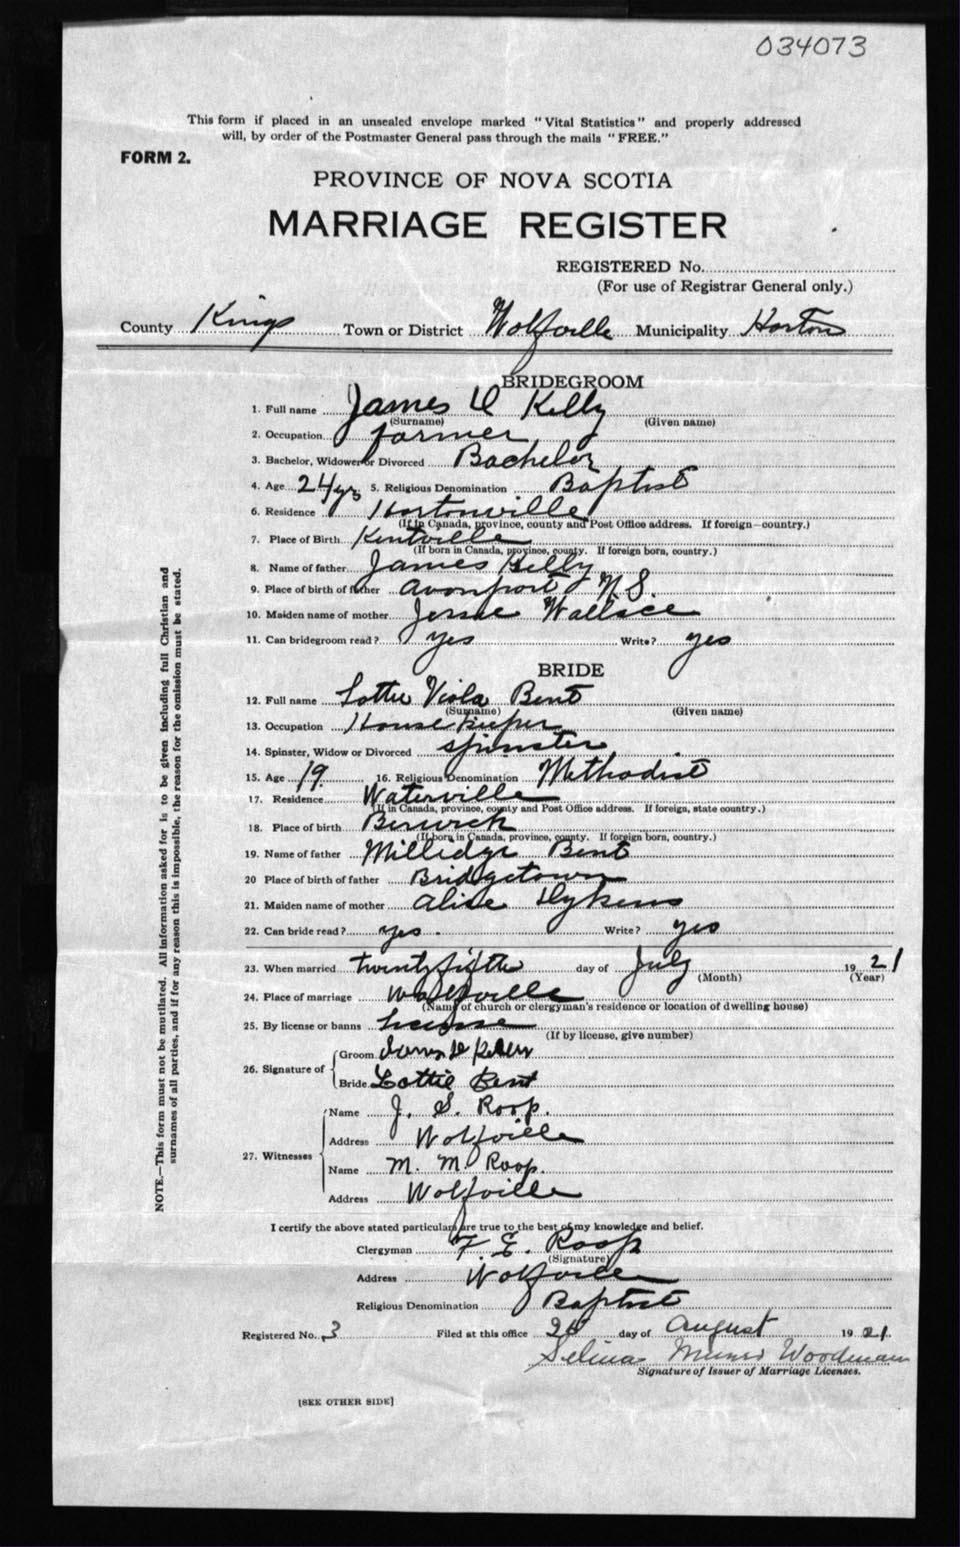 034073
This form if placed in an unsealed envelope marked "Vital Statistics" and properly addressed
will, by order of the Postmaster General pass through the mails "FREE."
FORM 2.
PROVINCE OF NOVA SCOTIA
MARRIAGE REGISTER
REGISTERED No.
(For use of Registrar General only.)
County Kings Town or District Wolfville Municipality Horton
BRIDEGROOM
1. Full name James D Kelly
(Surname) (Given name)
2. Occupation farmer
3. Bachelor, Widower or Divorced Bachelor
4. Age 24 yrs 5. Religious Denomination Baptist
6. Residence Hortonville
(If in Canada, province, county and Post Office address. If foreign—country.)
7. Place of Birth Kentville
(If born in Canada, province, county. If foreign born, country.)
8. Name of father James Kelly
9. Place of birth of father Avonport N.S.
10. Maiden name of mother Jessie Wallace
11. Can bridegroom read? yes Write? yes
BRIDE
12. Full name Lottie Viola Bent
(Surname) (Given name)
13. Occupation Housekeeper
14. Spinster, Widow or Divorced spinster
15. Age 19. 16. Religious Denomination Methodist
17. Residence Waterville
(If in Canada, province, county and Post Office address. If foreign, state country.)
18. Place of birth Berwick
(If born in Canada, province, county. If foreign born, country.)
19. Name of father Milledge Bent
20 Place of birth of father Bridgetown
21. Maiden name of mother Alice Dykens
22. Can bride read? yes. Write? yes
23. When married twenty fifth day of July 1921
(Month) (Year)
24. Place of marriage Wolfville
(Name of church or clergyman's residence or location of dwelling house)
25. By license or banns license
(If by license, give number)
26. Signature of
Groom James D Kelly
Bride Lottie Bent
27. Witnesses
Name J. S. Roop.
Address Wolfville
Name M. M Roop.
Address Wolfville
I certify the above stated particulars are true to the best of my knowledge and belief.
Clergyman F. E. Roop
(Signature)
Address Wolfville
Religious Denomination Baptist
Registered No. 3 Filed at this office day of August 1921.
Selina Munro Woodman
Signature of Issuer of Marriage Licenses.
[SEE OTHER SIDE]
NOTE.—This form must not be mutilated. All information asked for is to be given including full Christian and
surnames of all parties, and if for any reason this is impossible, the reason for the omission must be stated.